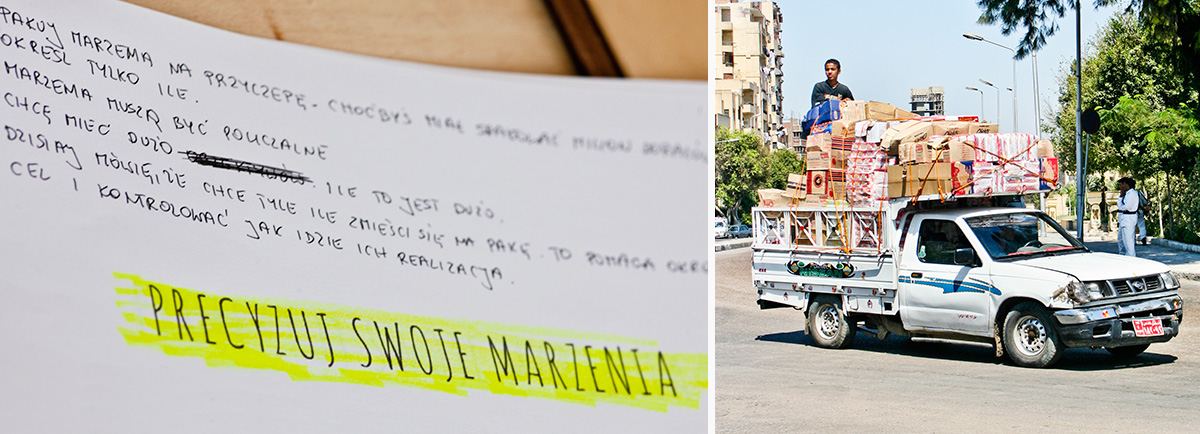 PAKUJ MARZENIA NA PRZYCZEPĘ. CHOĆBYŚ MIAŁ SPAKOWAĆ MILION
OKREŚL TYLKO ILE.
MARZENIA MUSZĄ BYĆ POLICZALNE
CHCĘ MIEĆ DUŻO . ILE TO JEST DUŻO.
DZISIAJ MÓWIĘ, ŻE CHCĘ TYLE ILE ZMIEŚCI SIĘ NA PAKĘ. TO POMAGA
CEL I KONTROLOWAĆ JAK IDZIE ICH REALIZACJA.
PRECYZUJ SWOJE MARZENIA